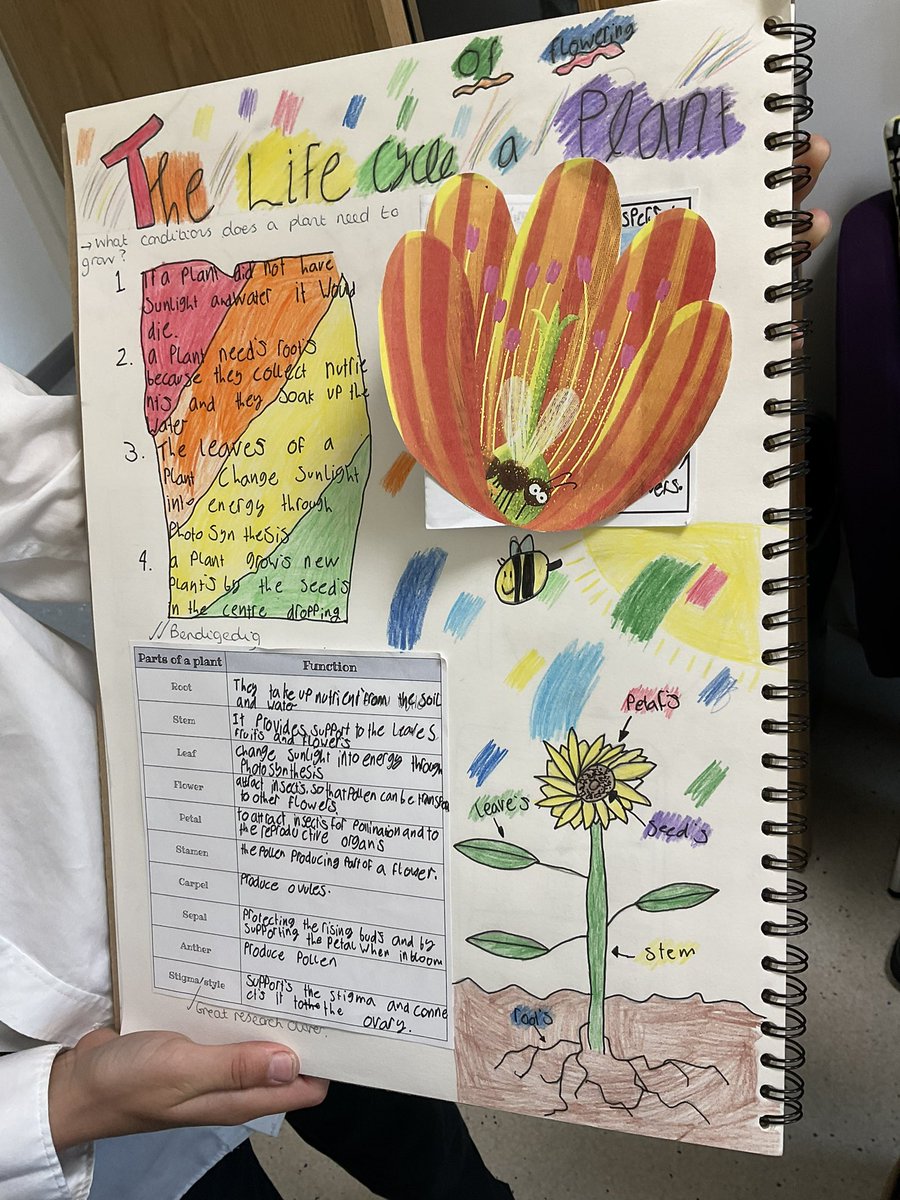 The Life Cycle Of a flowering Plant
→ What conditions does a plant need to
grow?
1. If a Plant did not have
Sunlight and water it Would
die.
2. a Plant need's root's
because they collect nutrie
nts and they soak up the
water
3. The leaves of a
Plant Change Sunlight
into energy through
Photo Syn thesis
4. a Plant grow's new
Plant's by the Seed's
in the centre dropping
// Bendigedig
Parts of a plant Function
Root They take up nutrient from the soil
and water
Stem It Provides support to the leaves
fruits and flowers
Leaf Change sunlight into energy through
Photosynthesis
Flower attract insect's so that Pollen can be
to other flowers
Petal to attract insects for Pollination and to
the reproductive organs
Stamen the Pollen Producing Part of a flower.
Carpel Produce ovules.
Sepal Protecting the rising bud's and by
supporting the Petal when in bloom
Anther Produce Pollen
Stigma/style Support's the stigma and conne
cts it to the ovary.
Great research
Petal's
leave's
Seed's
stem
root's